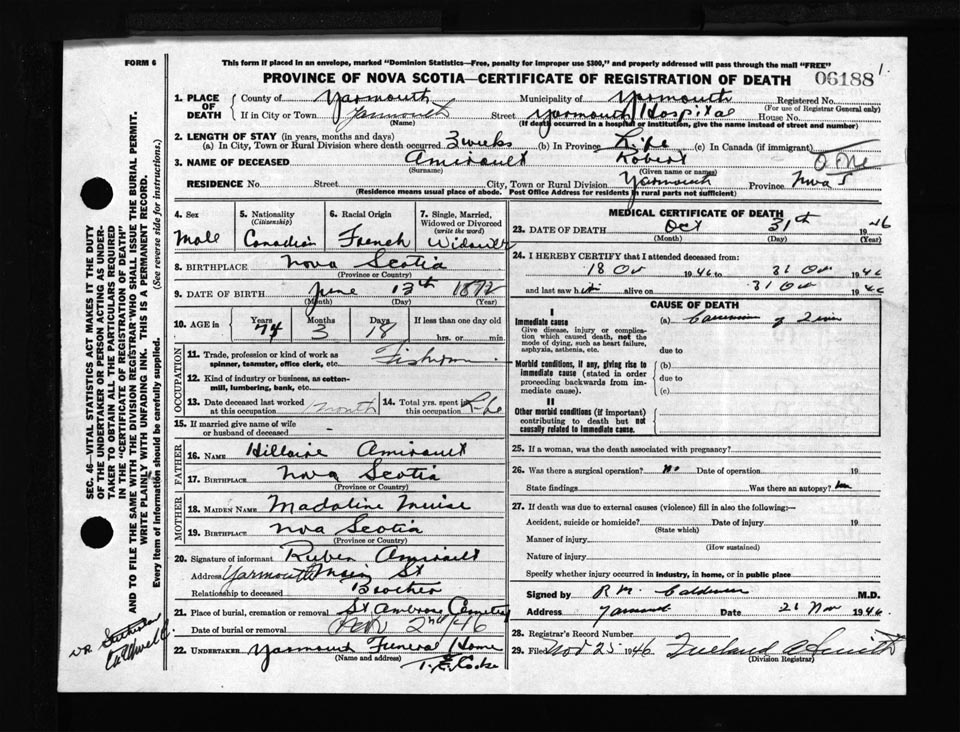 FORM 6
This form if placed in an envelope, marked "Dominion Statistics—Free, penalty for improper use $300," and properly addressed will pass through the mail "FREE"
PROVINCE OF NOVA SCOTIA—CERTIFICATE OF REGISTRATION OF DEATH 06188
1. PLACE OF DEATH { County of Yarmouth Municipality of Yarmouth Registered No.
(For use of Registrar General only)
If in City or Town Yarmouth Street Yarmouth Hospital House No.
(Name) (If death occurred in a hospital or institution, give the name instead of street and number)
2. LENGTH OF STAY (in years, months and days)
(a) In City, Town or Rural Division where death occurred 3 weeks (b) In Province Life (c) In Canada (if immigrant)
3. NAME OF DECEASED Amirault Robert
(Surname) (Given name or names)
RESIDENCE No. Street City, Town or Rural Division Yarmouth Province Nova S
(Residence means usual place of abode. Post Office Address for residents in rural parts not sufficient)
4. Sex Male
5. Nationality (Citizenship) Canadian
6. Racial Origin French
7. Single, Married, Widowed or Divorced (write the word) Widower
8. BIRTHPLACE Nova Scotia
(Province or Country)
9. DATE OF BIRTH June 13th 1872
(Month) (Day) (Year)
10. AGE in { Years 74 Months 3 Days 18 If less than one day old
hrs. or min.
OCCUPATION
11. Trade, profession or kind of work as spinner, teamster, office clerk, etc. Fisherman
12. Kind of industry or business, as cotton-mill, lumbering, bank, etc.
13. Date deceased last worked at this occupation month
14. Total yrs. spent in this occupation Life
15. If married give name of wife or husband of deceased -
FATHER
16. NAME Hillaire Amirault
17. BIRTHPLACE Nova Scotia
(Province or Country)
MOTHER
18. MAIDEN NAME Madaline Muise
19. BIRTHPLACE Nova Scotia
(Province or Country)
20. Signature of informant Ruben Amirault
Address Yarmouth Main St
Relationship to deceased Brother
21. Place of burial, cremation or removal St Ambrose Cemetery
Date of burial or removal Nov 2nd /46
22. UNDERTAKER Yarmouth Funeral Home
(Name and address) T. E. Cooke
MEDICAL CERTIFICATE OF DEATH
23. DATE OF DEATH Oct 31th 1946
(Month) (Day) (Year)
24. I HEREBY CERTIFY that I attended deceased from:
18 Oct 1946 to 31 Oct 1946
and last saw him alive on 31 Oct 1946
CAUSE OF DEATH
I
Immediate cause (a) Carcinoma of Liver
Give disease, injury or complication which caused death, not the mode of dying, such as heart failure, asphyxia, asthenia, etc.
due to
Morbid conditions, if any, giving rise to immediate cause (stated in order proceeding backwards from immediate cause).
(b)
due to
(c)
II
Other morbid conditions (if important) contributing to death but not causally related to immediate cause.
25. If a woman, was the death associated with pregnancy?
26. Was there a surgical operation? no Date of operation 19
State findings Was there an autopsy? no
27. If death was due to external causes (violence) fill in also the following:—
Accident, suicide or homicide? Date of injury 19
(State which)
Manner of injury
(How sustained)
Nature of injury
Specify whether injury occurred in industry, in home, or in public place
Signed by R M Caldwell M.D.
Address Yarmouth Date 21 Nov 1946
28. Registrar's Record Number
29. Filed Nov 25 1946
(Division Registrar)
SEC. 46—VITAL STATISTICS ACT MAKES IT THE DUTY
OF THE UNDERTAKER OR PERSON ACTING AS UNDER-
TAKER TO OBTAIN ALL THE PARTICULARS REQUIRED
IN THE "CERTIFICATE OF REGISTRATION OF DEATH"
AND TO FILE THE SAME WITH THE DIVISION REGISTRAR WHO SHALL ISSUE THE BURIAL PERMIT.
WRITE PLAINLY WITH UNFADING INK. THIS IS A PERMANENT RECORD.
Every item of information should be carefully supplied. (See reverse side for instructions.)